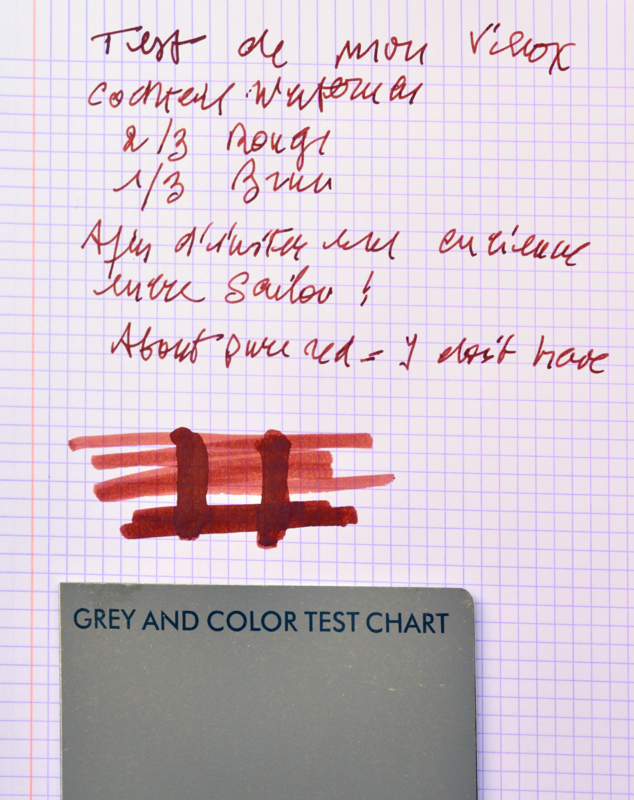 Test de mon vieux
cocktail Waterman
2/3 Rouge
1/3 Brun
Afin d'imiter une ancienne
encre Sailor !
About pure red = I don't have
GREY AND COLOR TEST CHART